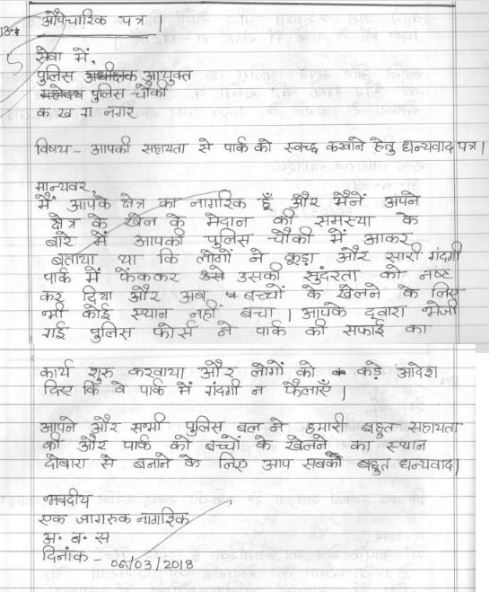 औपचारिक पत्र |
सेवा में,
पुलिस आयुक्त
पुलिस चौकी
क ख ग नगर
विषय - आपकी सहायता से पार्क को स्वच्छ करवाने हेतु धन्यवाद पत्र |
मान्यवर,
मैं आपके क्षेत्र का नागरिक हूँ और मैनें अपने
क्षेत्र के खेल के मैदान की समस्या के
बारे में आपकी पुलिस चौकी में आकर
बताया था कि लोगों ने कूड़ा और सारी गंदगी
पार्क में फेंककर उसकी सुंदरता को नष्ट
कर दिया और अब बच्चों के खेलने के लिए
भी कोई स्थान नहीं बचा | आपके द्वारा भेजी
गई पुलिस फोर्स ने पार्क की सफाई का
कार्य शुरू करवाया और लोगों को कड़े आदेश
दिए कि वे पार्क में गंदगी न फैलाएँ |
आपने और सभी पुलिस बल ने हमारी बहुत सहायता
की और पार्क को बच्चों के खेलने का स्थान
दोबारा से बनाने के लिए आप सबको बहुत धन्यवाद|
भवदीय
एक जागरुक नागरिक
अ. ब. स
दिनांक - 06/03/2018